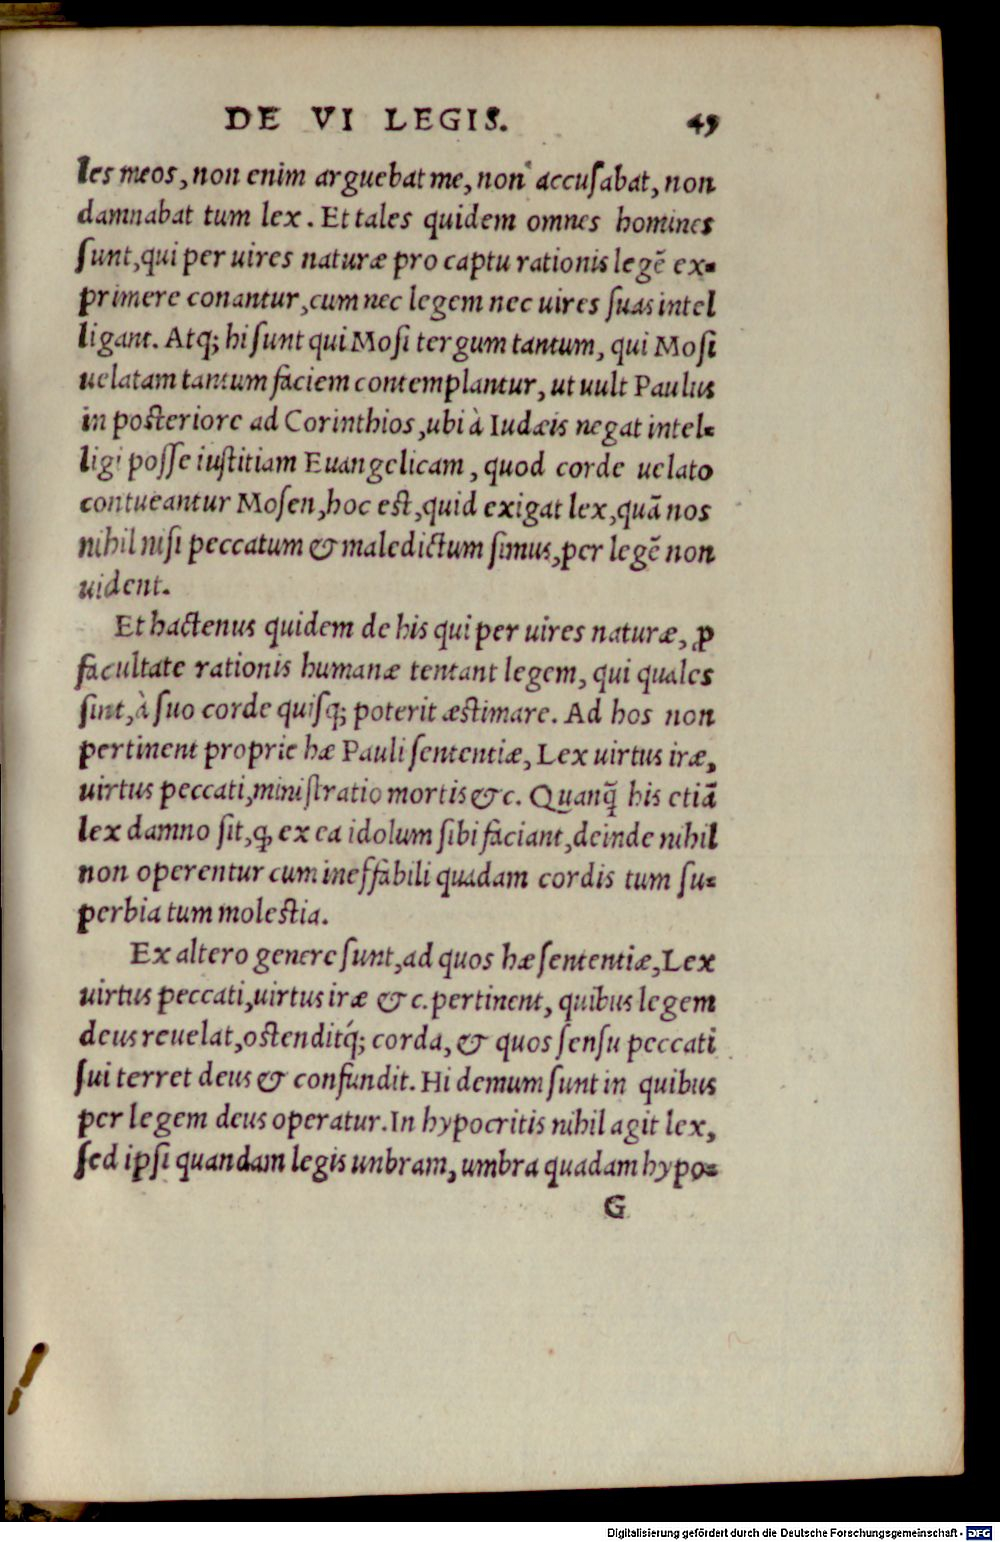 DE VI LEGIS. 49
les meos, non enim arguebat me, non accuſabat, non
damnabat tum lex. Et tales quidem omnes homines
ſunt, qui per uires naturæ pro captu rationis legẽ ex-
primere conantur, cum nec legem nec uires ſuas intel
ligant. Atq; hi ſunt qui Moſi tergum tantum, qui Moſi
uelatam tantum faciem contemplantur, ut uult Paulus
in poſteriore ad Corinthios, ubi à Iudæis negat intel-
ligi poſſe iuſtitiam Euangelicam, quod corde uelato
contueantur Moſen, hoc eſt, quid exigat lex, quã nos
nihil niſi peccatum & maledictum ſimus, per legẽ non
uident.
Et hactenus quidem de his qui per uires naturæ, ꝓ
facultate rationis humanæ tentant legem, qui quales
ſint, à ſuo corde quiſq; poterit æſtimare. Ad hos non
pertinent proprie hæ Pauli ſententiæ, Lex uirtus iræ,
uirtus peccati, miniſtratio mortis &c. Quanq̃ his etiã
lex damno ſit, ꝙ ex ea idolum ſibi faciant, deinde nihil
non operentur cum ineffabili quadam cordis tum ſu-
perbia tum moleſtia.
Ex altero genere ſunt, ad quos hæ ſententiæ, Lex
uirtus peccati, uirtus iræ &c. pertinent, quibus legem
deus reuelat, oſtenditq́; corda, & quos ſenſu peccati
ſui terret deus & confundit. Hi demum ſunt in quibus
per legem deus operatur. In hypocritis nihil agit lex,
ſed ipſi quandam legis unbram, umbra quadam hypo-
G
Digitalisierung gefördert durch die Deutsche Forschungsgemeinschaft - DFG